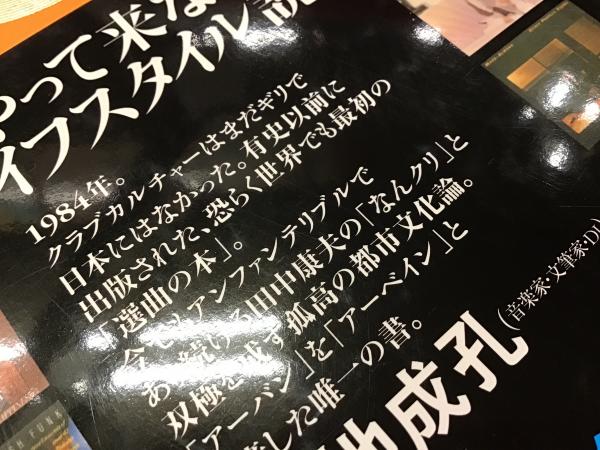 って来な
イフスタイル説
1984年。
クラブカルチャーはまだギリで
日本にはなかった。有史以前に
出版された、恐らく世界でも最初の
「選曲の本」。
今でもアンファンテリブルで
あり続ける田中康夫の「なんクリ」と
双極を成す孤高の都市文化論。
「アーバン」を「アーベイン」と
した唯一の書。
地成孔
(音楽家・文筆家・DJ
FUNK